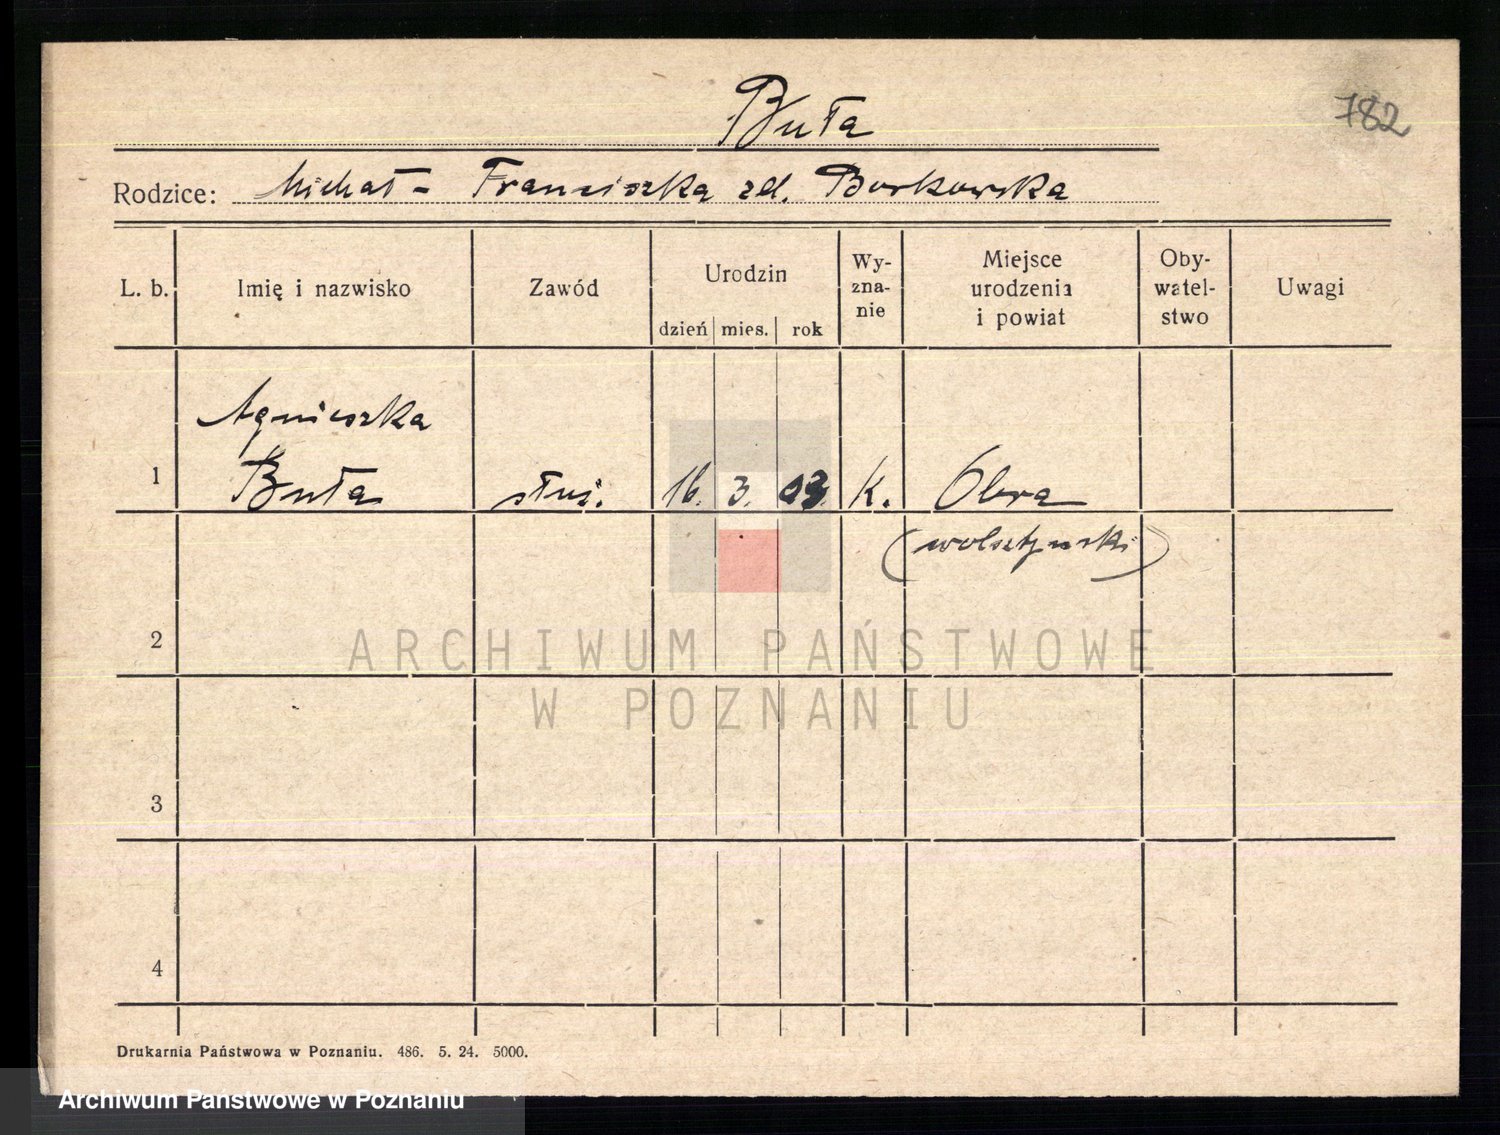 Buła
782
Rodzice: Michał - Franciszka zd. Borkowska
L. b. Imię i nazwisko Zawód Urodzin dzień mies. rok Wy-zna-nie Miejsce urodzenia i powiat Oby-watel-stwo Uwagi
Agnieszka
1 Buła służ. 16. 3. 03. k. Obra
(wolsztyński)
2
3
4
Drukarnia Państwowa w Poznaniu. 486. 5. 24. 5000.
ARCHIWUM PAŃSTWOWE
W POZNANIU
Archiwum Państwowe w Poznaniu